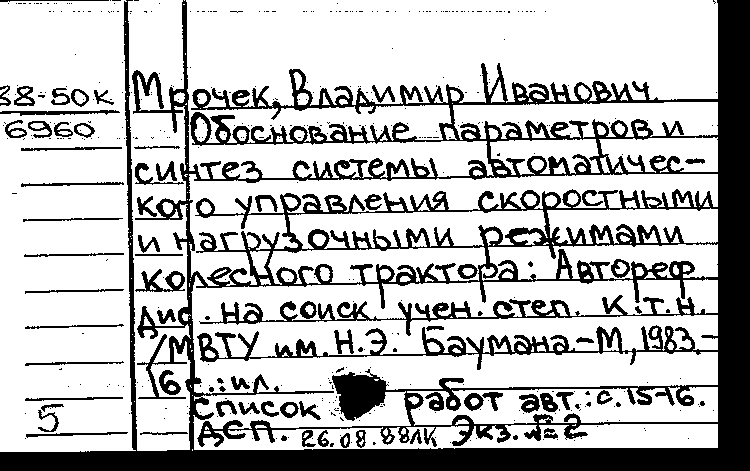 38-50к
6960
Мрочек, Владимир Иванович.
Обоснование параметров и
синтез системы автоматичес-
кого управления скоростными
и нагрузочными режимами
колесного трактора: Автореф
дис. на соиск. учен. степ. к.т.н.
/МВТУ им. Н.Э. Баумана.-М., 1983.-
16с.: ил.
Список работ авт.: с. 15-16.
5
ДСП. 26.08.88 Экз. №2